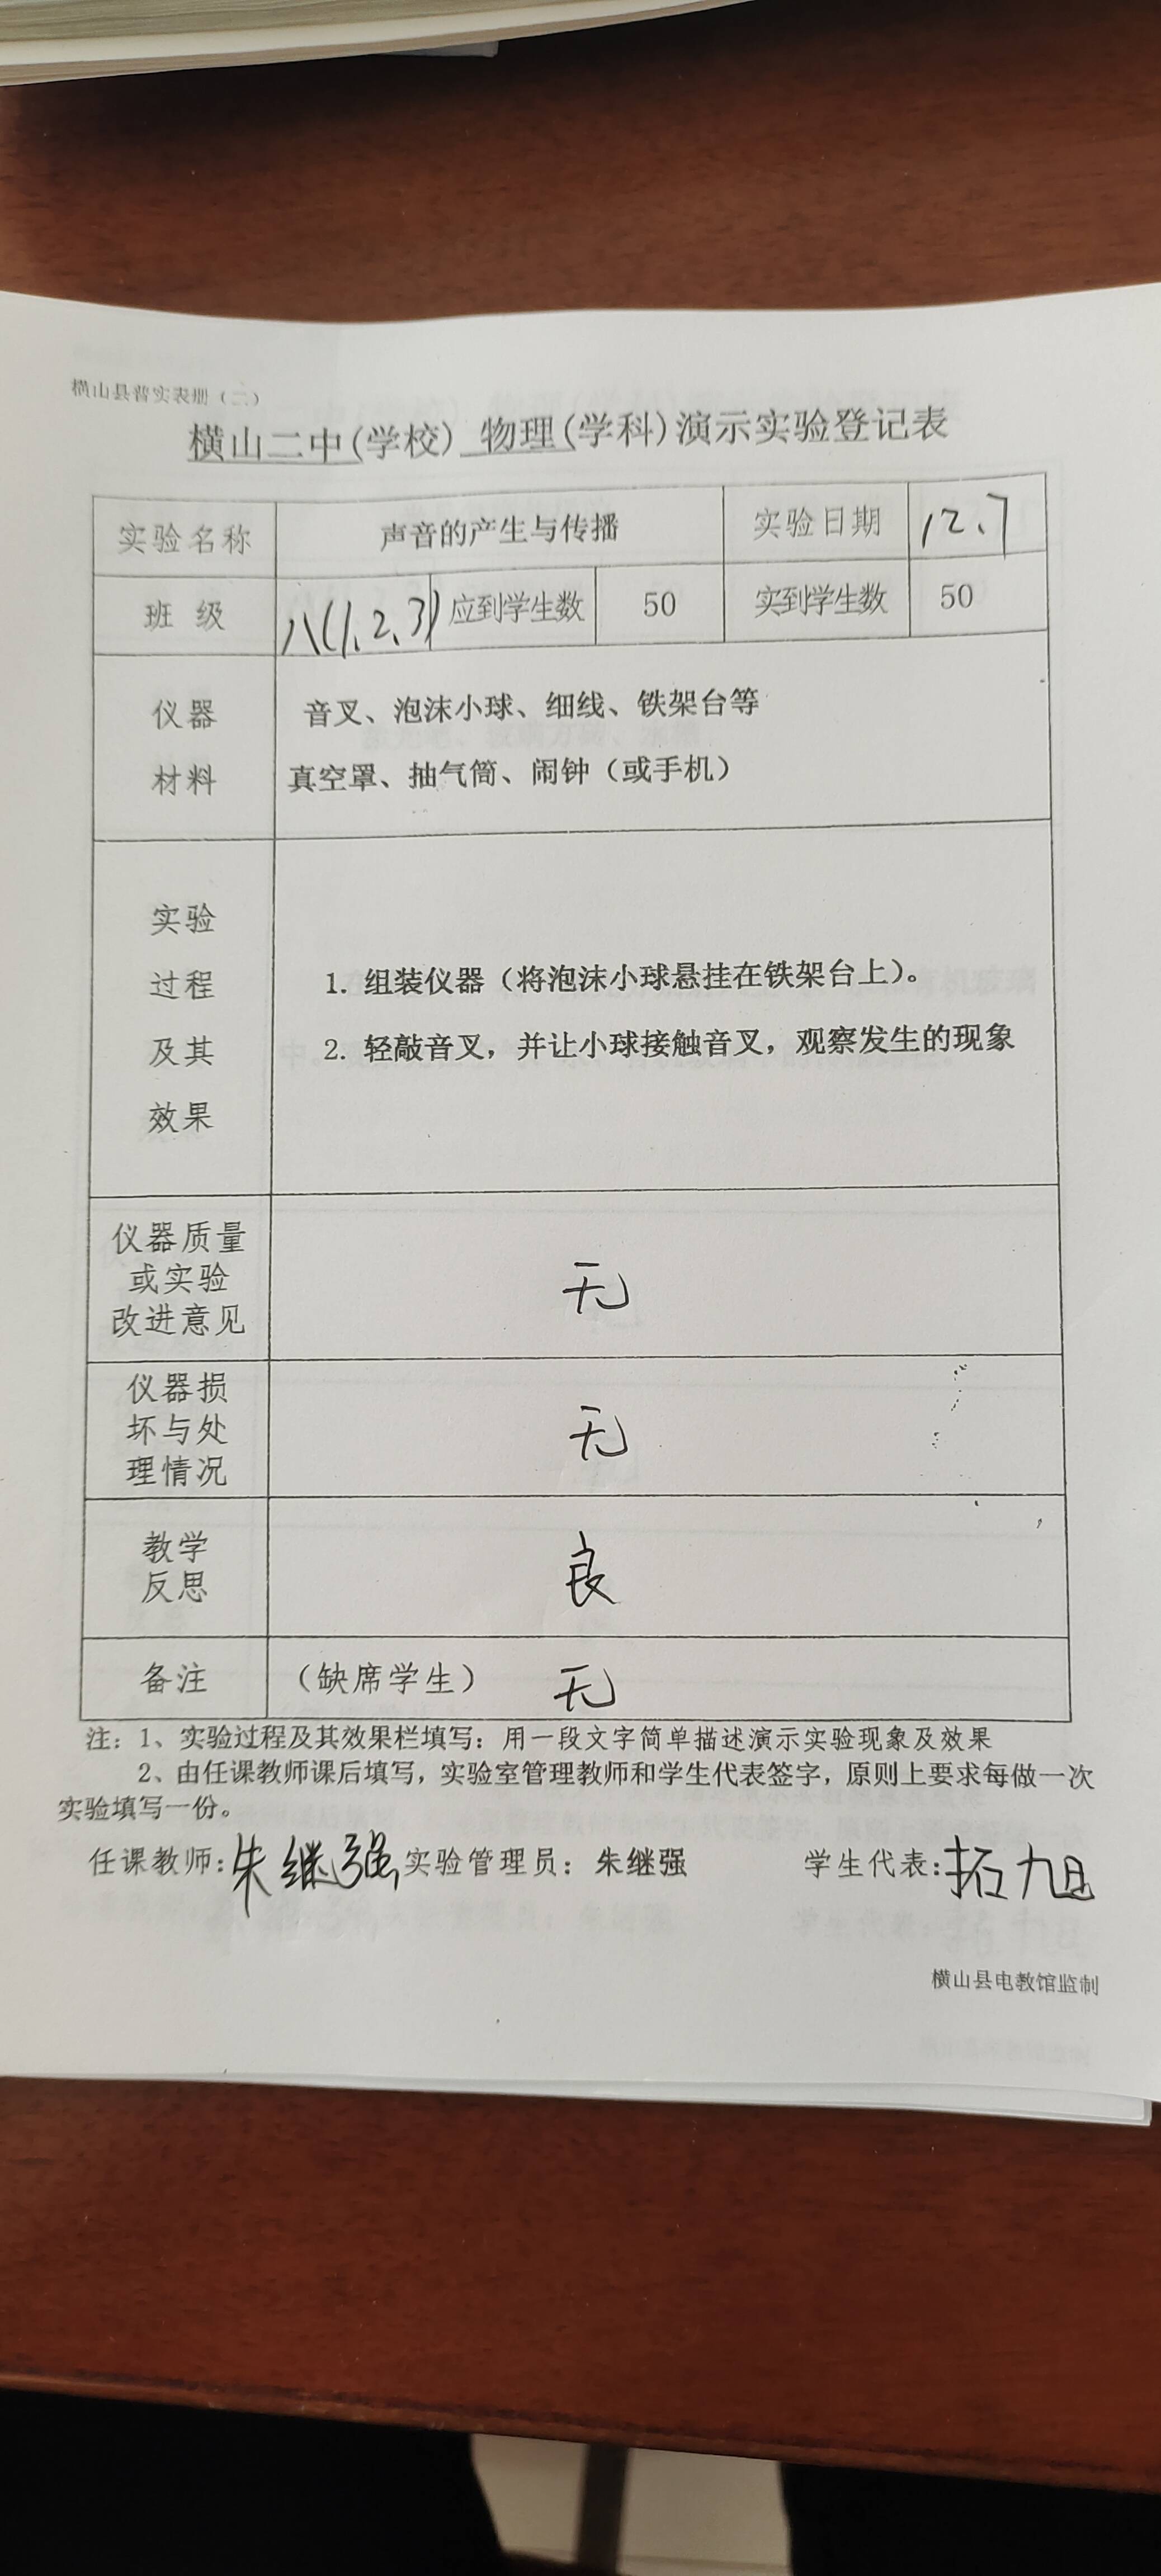 横山县普实表册（二）
横山二中(学校) 物理(学科)演示实验登记表
实验名称 声音的产生与传播 实验日期 12.7
班 级 八(1.2.3) 应到学生数 50 实到学生数 50
仪器 音叉、泡沫小球、细线、铁架台等
材料 真空罩、抽气筒、闹钟（或手机）
实验
过程 1. 组装仪器（将泡沫小球悬挂在铁架台上）。
及其 2. 轻敲音叉，并让小球接触音叉，观察发生的现象
效果
仪器质量
或实验 无
改进意见
仪器损
坏与处 无
理情况
教学 良
反思
备注 （缺席学生） 无
注：1、实验过程及其效果栏填写：用一段文字简单描述演示实验现象及效果
2、由任课教师课后填写，实验室管理教师和学生代表签字，原则上要求每做一次
实验填写一份。
任课教师:朱继强 实验管理员：朱继强 学生代表:拓旭
横山县电教馆监制